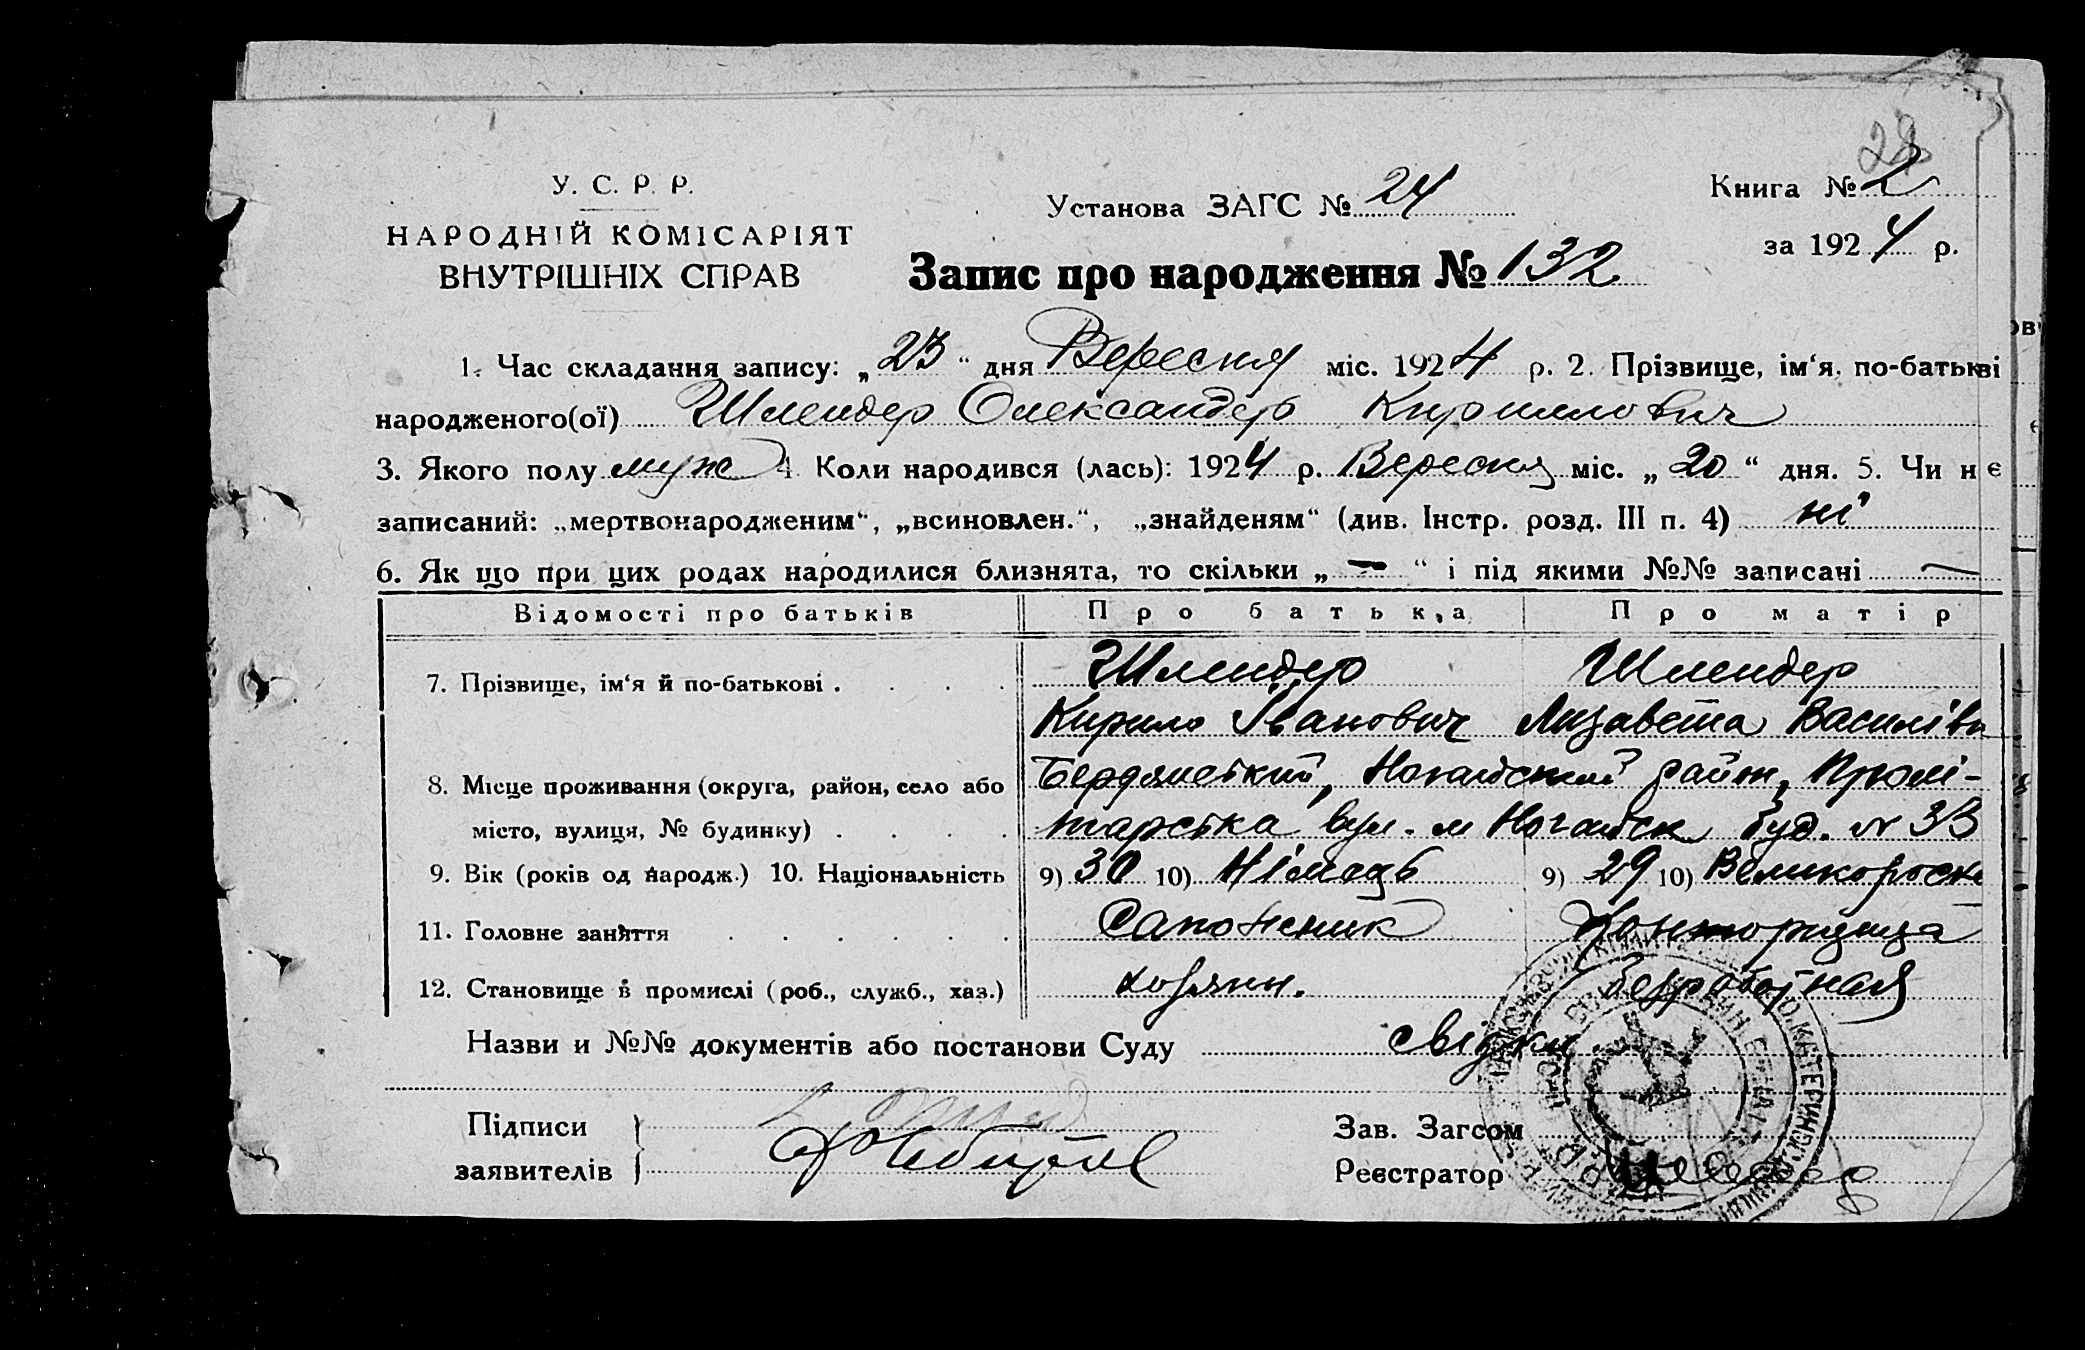 28
У. С. Р. Р.
НАРОДНІЙ КОМІСАРІЯТ
ВНУТРІШНІХ СПРАВ
Установа ЗАГС № 24
Книга № 2
за 1924 р.
Запис про народження № 132
1. Час складання запису: „23“ дня Вересня міс. 1924 р. 2. Прізвище, ім‘я, по-батькові
народженого(ої) Шлендер Олександер Кирилович
3. Якого полу муж 4 Коли народився (лась): 1924 р. Вересня міс. „20“ дня. 5. Чи не
записаний: „мертвонародженим“, „всиновлен.“, „знайденям“ (див. Інстр. розд. III п. 4) ні
6. Як що при цих родах народилися близнята, то скільки „—“ і під якими №№ записані —
Відомості про батьків Про батька Про матір
7. Прізвище, ім‘я й по-батькові . . . . Шлендер Шлендер
Кирило Іванович Лизавета Василівн
8. Місце проживання (округа, район, село або Бердянський, Ногайський район, Пролі-
місто, вулиця, № будинку) . . . . тарська вул. м Ногайск буд. № 33
9. Вік (років од народж.) 10. Національність 9) 30 10) Німець 9) 29 10) Великороск
11. Головне заняття . . . . . . Сапожник Конторщица
12. Становище в промислі (роб., служб., хаз.) хозяин. безработная
Назви и №№ документів або постанови Суду свідки
Підписи
заявителів
Зав. Загсом
Реєстратор